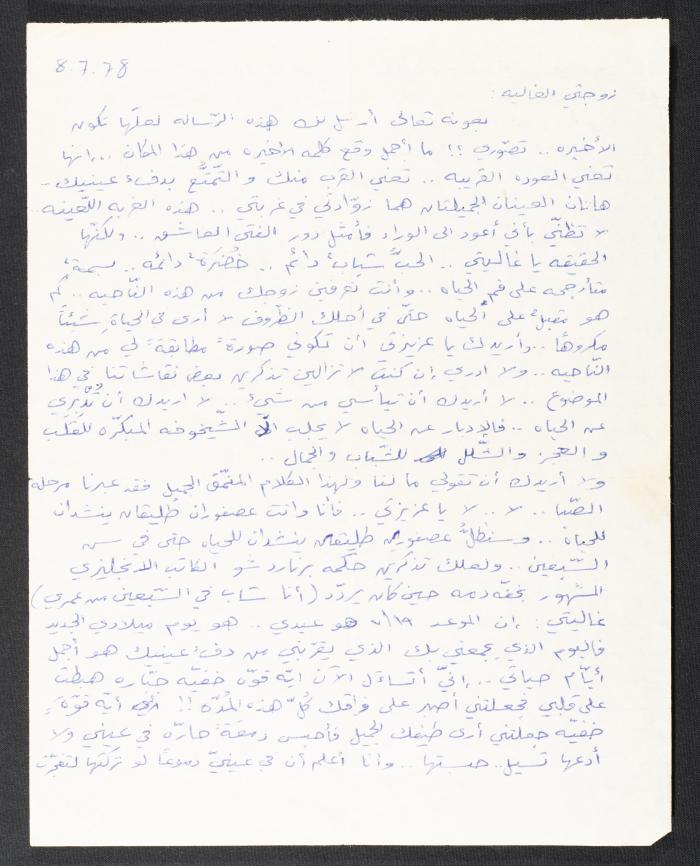 8.7.78
زوجتي الغاليه :
بعونه تعالى أرسل لك هذه الرّساله لعلّها تكون
الأخيره .. تصوّري !! ما أجمل وقع كلمه الأخيره من هذا المكان .. إنها
تعني العوده القريبه .. تعني القرب منك والتّمتّع بدفء عينيك ..
هاتان العينان الجميلتان هما زوّادتي في غربتي .. هذه الغربه اللّعينه ..
لا تظنّي بأني أعود الى الوراء فأمثل دور الفتى العاشق .. ولكنّها
الحقيقه يا غاليتي .. الحبّ شبابٌ دائم .. خُضرَة دائمه .. بسمةٌ
متأرجحه على فم الحياه .. وأنت تعرفين زوجك من هذه النّاحيه .. كم
هو مقبلٌ على الحياه حتّى في أحلك الظّروف لا أرى في الحياة شيئاً
مكروهًا .. وأريدك يا عزيزتي أن تكوني صورةً مطابقةً لي من هذه
النّاحيه .. ولا ادري إن كنت لا تزالين تذكرين بعض نقاشاتنا في هذا
الموضوع .. لا أريدك أن تيأسي من شيءٍ .. لا اريدك أن تُدْبِري
عن الحياه .. فالإدبار عن الحياه لا يجلب الّا الشّيخوخه المبكّره للقلب
والعجز والشّلل للشّباب والجمال ..
ولا أريدك أن تقولي ما لنا ولهذا الكلام المنمّق الجميل فقد عبرنا مرحلة
الصّبا .. لا .. لا يا عزيزتي .. فأنا وانت عصفوران طليقان ينشدان
للحياة .. وسنظلُّ عصفورين طليقين ينشدان للحياه حتى في سن
السّبعين .. ولعلك تذكرين حكمه برناردشو الكاتب الانجليزي
المشهور بخفّه دمه حين كان يردّد ( أنا شاب في السّبعين من عمري )
غاليتي : إن الموعد ٧/١٩ هو عيدي .. هو يوم ميلادي الجديد
فاليوم الذي يجمعني بك الذي يقرّبني من دفء عينيك هو أجمل
أيّام حياتي .. إنّي أتساءل الآن أيّه قوّه خفيّه جبّاره هبطت
على قلبي فجعلتني أصبر على فراقك كُلّ هذه المُدّه !! أيّه قوّة
خفيّه جعلتني أرى طيفك الجميل فأحبس دمعَةً حارّه في عيني ولا
أدعها تسيل .. حبستها .. وأنا أعلم أن في عينيّ دموعًا لو تركتها لتفجّرت